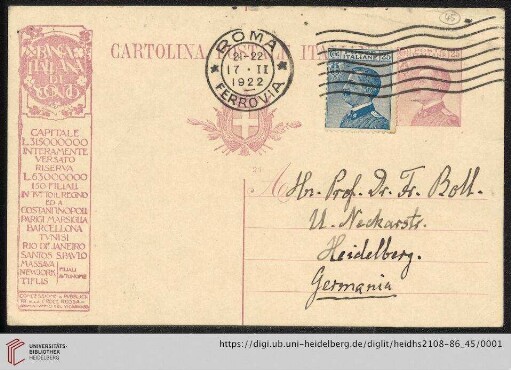 45
BANCA
ITALIANA
DI
SCONTO
CAPITALE
L.315000000
INTERAMENTE
VERSATO
RISERVA
L.63000000
150 FILIALI
IN TVTTO IL REGNO
ED A
COSTANTINOPOLI
PARIGI MARSIGLIA
BARCELLONA
TVNISI
RIO DE JANEIRO
SANTOS SPAVLO
MASSAVA
NEW YORK
TIFLIS
FILIALI
AVTONOME
CARTOLINA POSTALE ITALIANA
ROMA
21-22
17·II
1922
FERROVIA
A Hn. Prof. Dr. Fr. Boll.
U. Neckarstr.
Heidelberg.
Germania
UNIVERSITÄTS-
BIBLIOTHEK
HEIDELBERG
https://digi.ub.uni-heidelberg.de/diglit/heidhs2108-86_45/0001